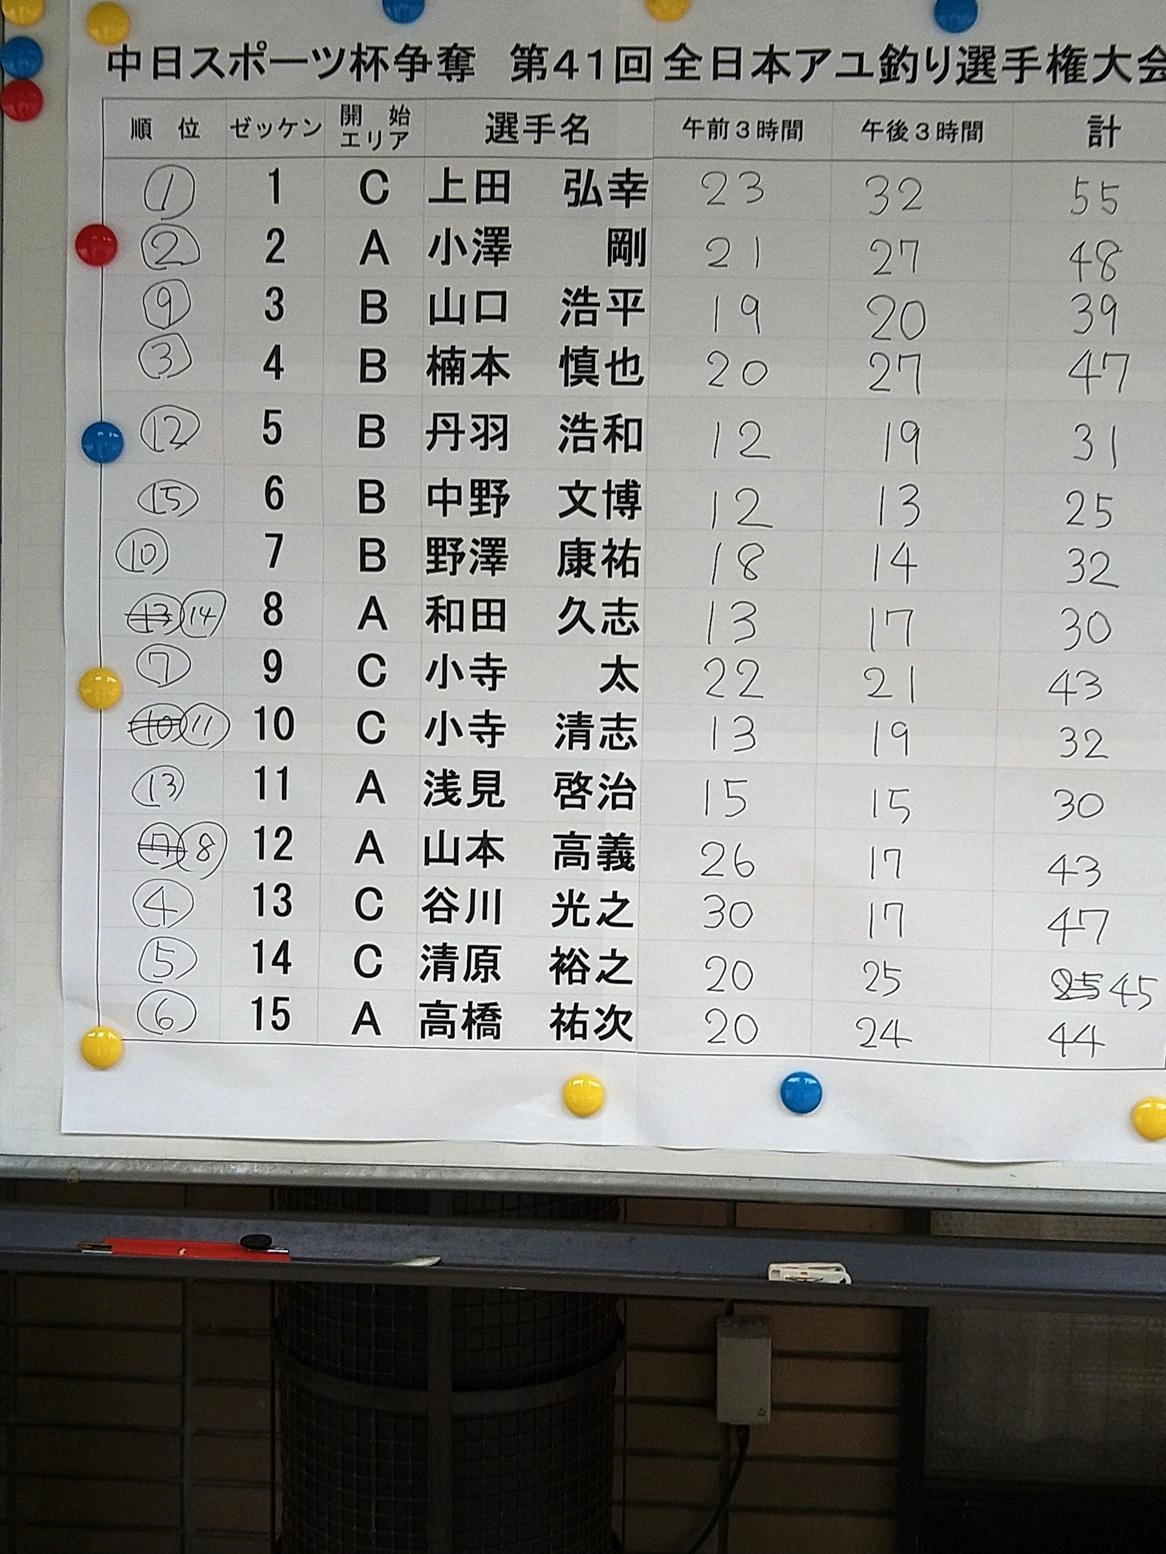 中日スポーツ杯争奪 第41回全日本アユ釣り選手権大会
順位 ゼッケン 開始エリア 選手名 午前3時間 午後3時間 計
① 1 C 上田 弘幸 23 32 55
② 2 A 小澤 剛 21 27 48
⑨ 3 B 山口 浩平 19 20 39
③ 4 B 楠本 慎也 20 27 47
⑫ 5 B 丹羽 浩和 12 19 31
⑮ 6 B 中野 文博 12 13 25
⑩ 7 B 野澤 康祐 18 14 32
⑬ ⑭ 8 A 和田 久志 13 17 30
⑦ 9 C 小寺 太 22 21 43
⑩ ⑪ 10 C 小寺 清志 13 19 32
⑬ 11 A 浅見 啓治 15 15 30
⑦ ⑧ 12 A 山本 高義 26 17 43
④ 13 C 谷川 光之 30 17 47
⑤ 14 C 清原 裕之 20 25 25 45
⑥ 15 A 高橋 祐次 20 24 44